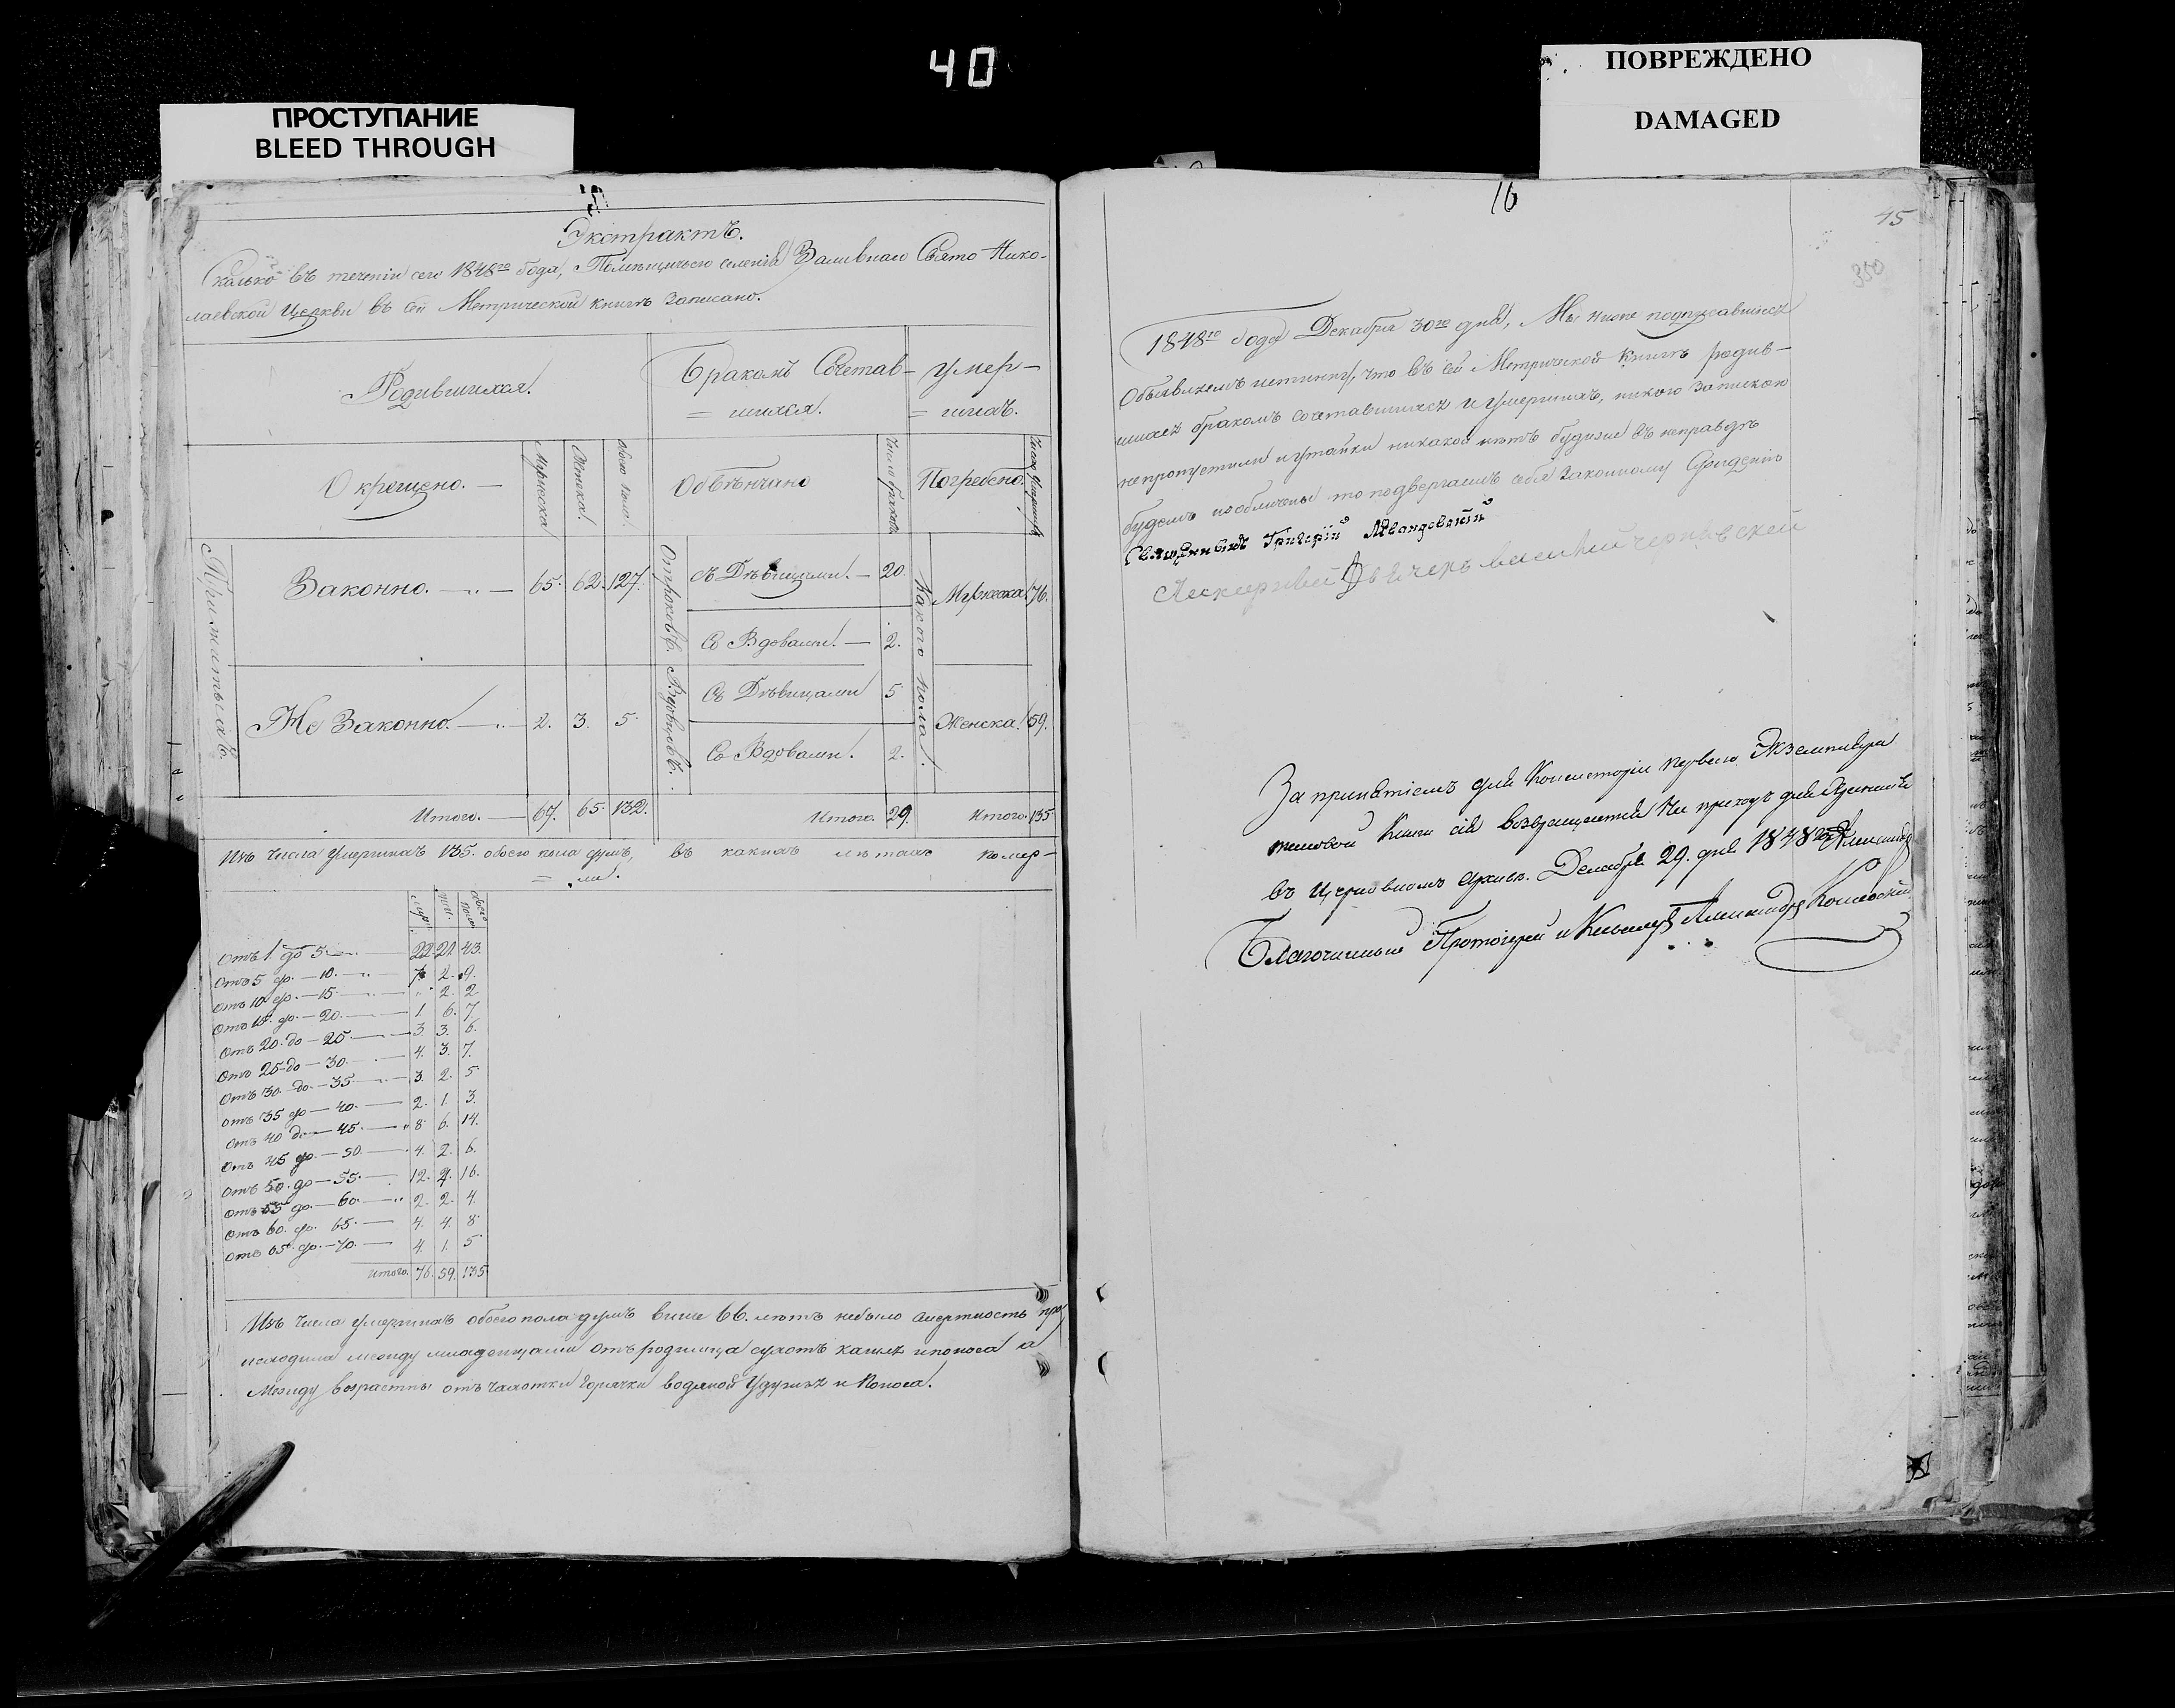 40
ПРОСТУПАНИЕ
BLEED THROUGH
ПОВРЕЖДЕНО
DAMAGED
Экстрактъ.
Сколько въ теченіи сего 1848го Года, Помѣщичьего селенія Заливнаго Свято Нико-
лаевской Церкви въ сей Метрической книгѣ Записано.
Родившихся. Бракомъ Сочетав- Умер-
= шихся. = шихъ.
Окрещено. — Мужеска Женска Обоего пола Обвѣнчано Число браковъ Погребено.
Прижитыхъ.
Законно. — 65. 62. 127. Отроковъ. съ Дѣвицами. — 20. Какого пола. Мужеска. 76.
Со Вдовами. — 2.
Не Законно. — 2. 3. 5. Вдовцовъ. Съ Дѣвицами 5 Женска. 59.
Со Вдовами. 2.
Итого. — 67. 65. 132. Итого. 29. Итого. 135
Изъ числа умершихъ 135. обоего пола душъ, въ какихъ лѣтахъ помер-
= ли.
муж. жен. обоего пола
Отъ 1 до 5 — 22. 21. 43.
Отъ 5 до — 10. — 7 2. 9.
Отъ 10 до — 15 — 2. 2
Отъ 15. до — 20. — 1 6. 7.
Отъ 20. до — 25 — 3 3. 6.
Отъ 25 до — 30. 4. 3. 7.
Отъ 30. до — 35 — 3. 2. 5
Отъ 35 до — 40. — 2. 1. 3.
Отъ 40 до — 45. — 8 6. 14.
Отъ 45 до — 50. — 4. 2. 6.
Отъ 50. до — 55. — 12. 4. 16.
Отъ 55 до — 60. — 2. 2. 4.
Отъ 60. до 65. — 4. 4. 8
Отъ 65. до — 70. — 4. 1. 5
Итого. 76. 59. 135
Изъ числа умершихъ обоего пола душъ выше 66. лѣтъ небыло смертность про
исходила между младенцами отъ родимца сухотъ кашля и поноса а
Между возрастны отъ чахотки горячки водяной Удушья и Поноса.
16
45
350
1848го Года Декабря 30го дня, Мы ниже подписавшиеся
Объявляемъ истинну, что въ сей Метрической книгѣ родив-
шихся бракомъ сочетавшихся и Умершихъ, никого Запискою
непропустили и утайки никакой нѣтъ будеже въ неправдѣ
будемъ изобличены то подвергаемъ себя Законному Сужденію
Священникъ Григорій
За принятіемъ для Консисторіи перваго Экземпляра
таковой Книги сія возвращается На приходъ для храненія
въ Церковномъ Архивѣ. Декабря 29. дня 1848
Благочинный Протоіерей и Кавалеръ Александръ